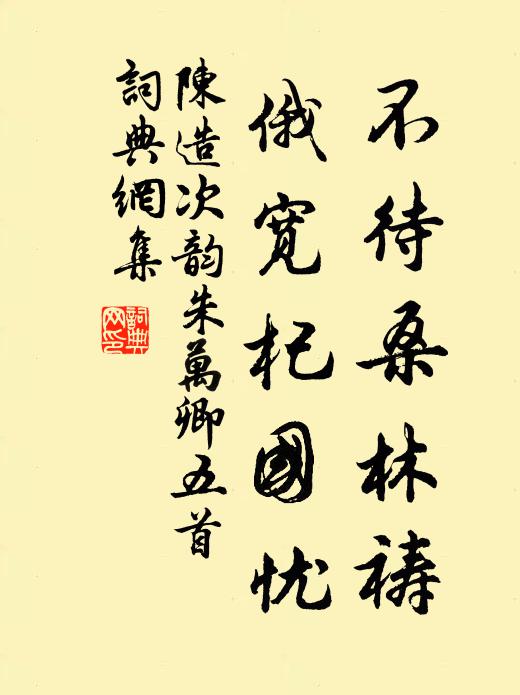 不待桑林禱
俄寬杞國忧
陳造次韵朱萬卿五首
詞典網集
詞典网印